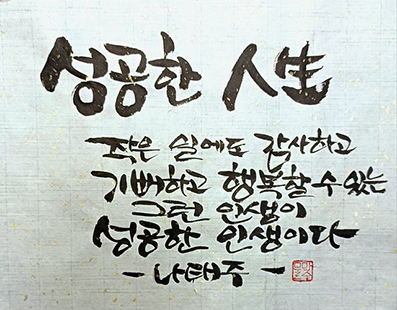 성공한 人生
작은 일에도 감사하고
기뻐하고 행복할 수 있는
그런 인생이
성공한 인생이다
- 나태주 -